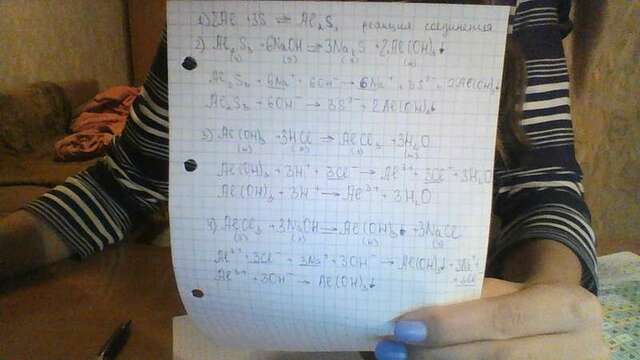 1) 2Al + 3S ⇌ Al₂S₃ реакция соединения
2) Al₂S₃ + 6NaOH ⇌ 3Na₂S + 2Al(OH)₃↓
(н) (р) (р) (н)
Al₂S₃ + 6Na⁺ + 6OH⁻ → 6Na⁺ + 3S²⁻ + 2Al(OH)₃↓
Al₂S₃ + 6OH⁻ → 3S²⁻ + 2Al(OH)₃↓
3) Al(OH)₃ + 3HCl ⇌ AlCl₃ + 3H₂O
(н) (р) (р) (м)
Al(OH)₃ + 3H⁺ + 3Cl⁻ → Al³⁺ + 3Cl⁻ + 3H₂O
Al(OH)₃ + 3H⁺ → Al³⁺ + 3H₂O
4) AlCl₃ + 3NaOH ⇌ Al(OH)₃↓ + 3NaCl
(р) (р) (н) (р)
Al³⁺ + 3Cl⁻ + 3Na⁺ + 3OH⁻ → Al(OH)₃↓ + 3Na⁺
+ 3Cl⁻
Al³⁺ + 3OH⁻ → Al(OH)₃↓